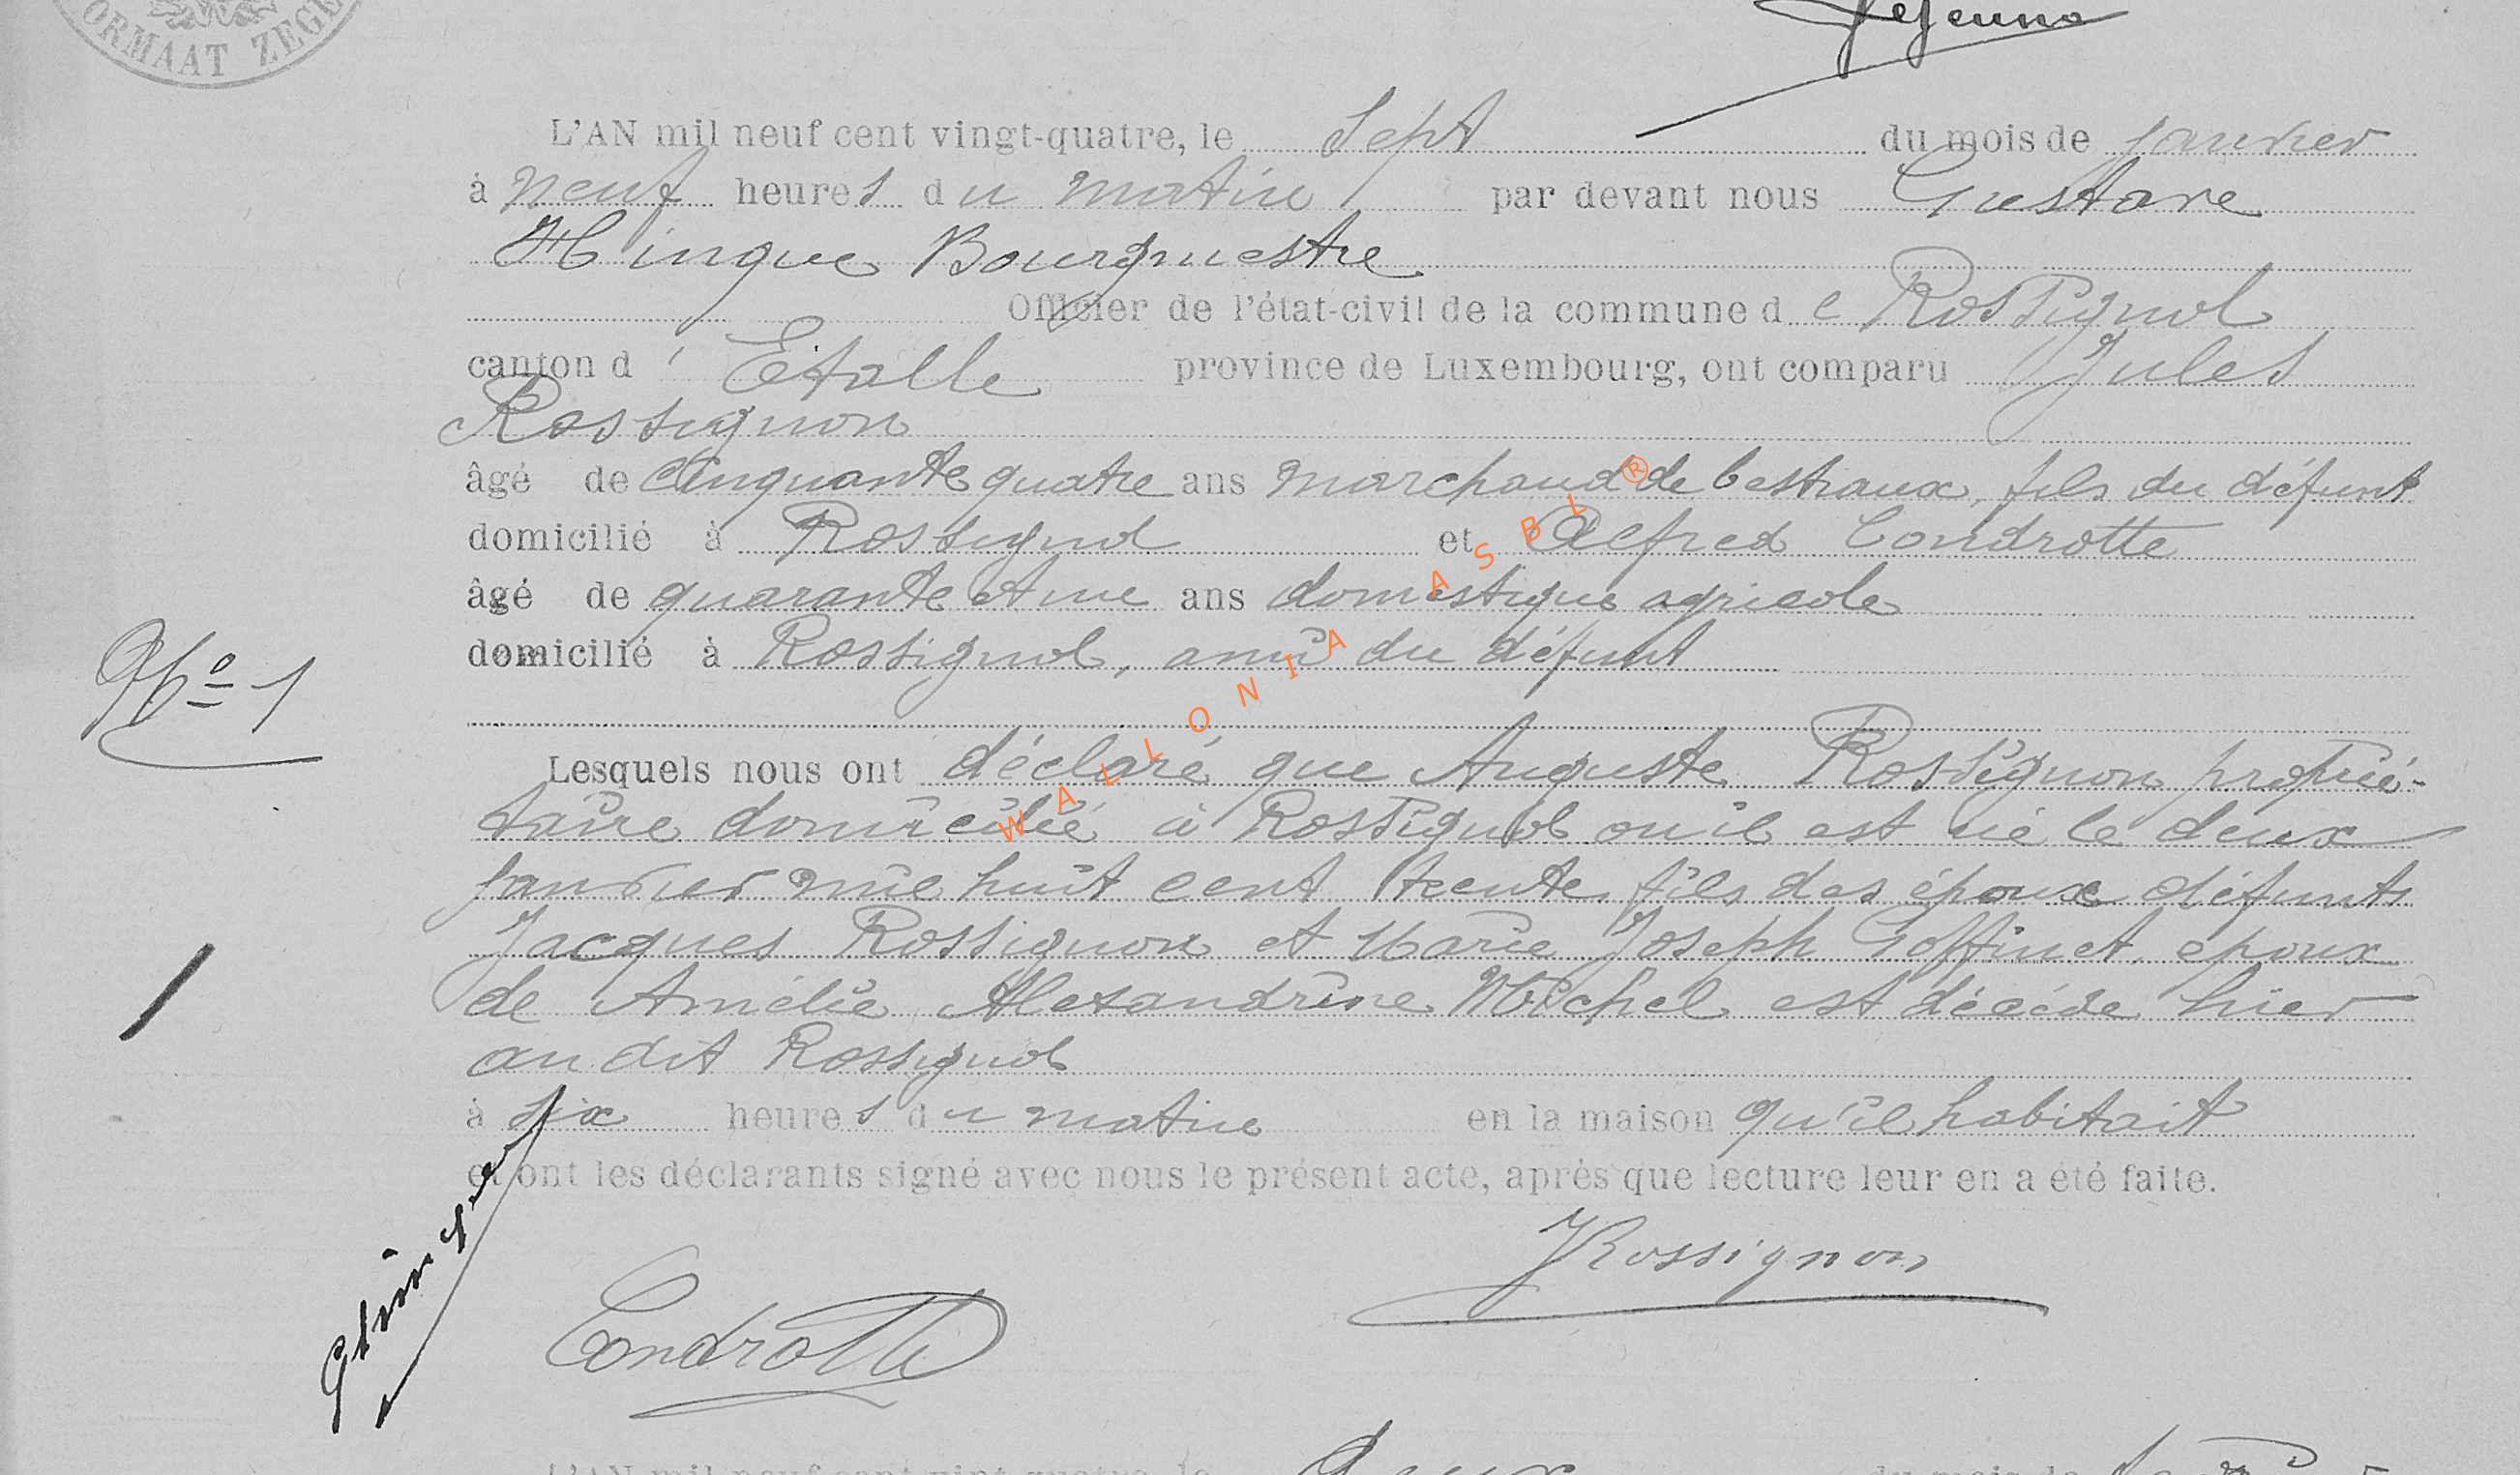 ORMAAT ZEGE
Lejeune
L'AN mil neuf cent vingt-quatre, le Sept du mois de janvier
à neuf heures du matin par devant nous Gustave
Hinque Bourgmestre
Officier de l'état-civil de la commune de Rossignol
canton d'Etalle province de Luxembourg, ont comparu Jules
Rossignon
âgé de Cinquante quatre ans marchand de bestiaux, fils du défunt
domicilié à Rossignol et Alfred Condrotte
âgé de quarante et une ans domestique agricole
domicilié à Rossignol, ami du défunt
No 1
Lesquels nous ont déclaré que Auguste Rossignon proprié-
taire domicilié à Rossignol ou il est né le deux
janvier mil huit cent trente, fils des époux défunts
Jacques Rossignon et Marie Joseph Goffinet, époux
de Amélie Alexandrine Michel est décédé hier
au dit Rossignol
à six heures du matin en la maison qu'il habitait
et ont les déclarants signé avec nous le présent acte, après que lecture leur en a été faite.
JRossignon
Condrotte
GHinque
L'AN mil neuf cent vingt-quatre, le Deux du mois de
WALLONIA ASBL ®